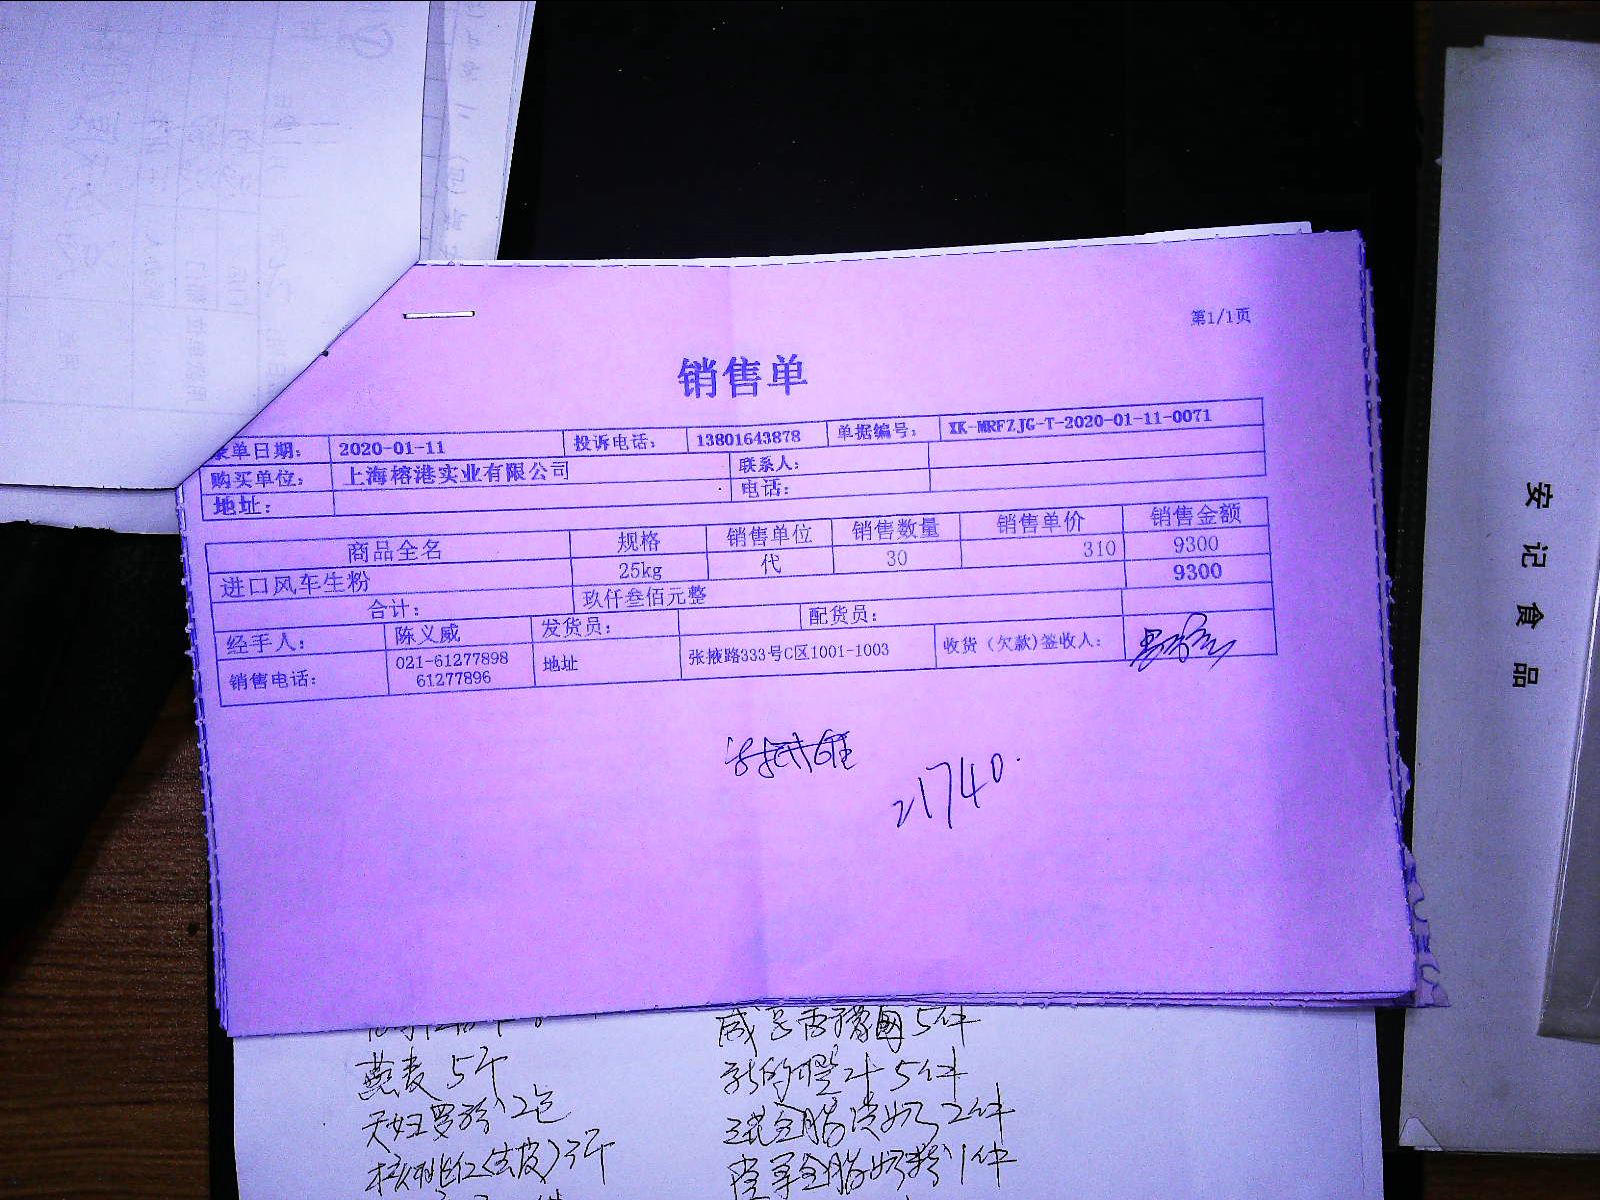 第1/1页
销售单
录单日期： 2020-01-11 投诉电话： 13801643878 单据编号： XK-MRFZJG-T-2020-01-11-0071
购买单位： 上海榕港实业有限公司 联系人：
地址： 电话：
商品全名 规格 销售单位 销售数量 销售单价 销售金额
进口风车生粉 25kg 代 30 310 9300
合计： 玖仟叁佰元整 9300
经手人： 陈义威 发货员： 配货员：
销售电话： 021-61277898 61277896 地址 张掖路333号C区1001-1003 收货（欠款)签收人：
21740.
燕麦 5斤
天妇罗粉 2包
核桃仁(去皮) 3斤
5件
5件
全脂淡奶 2件
全脂奶粉 1件
安记食品